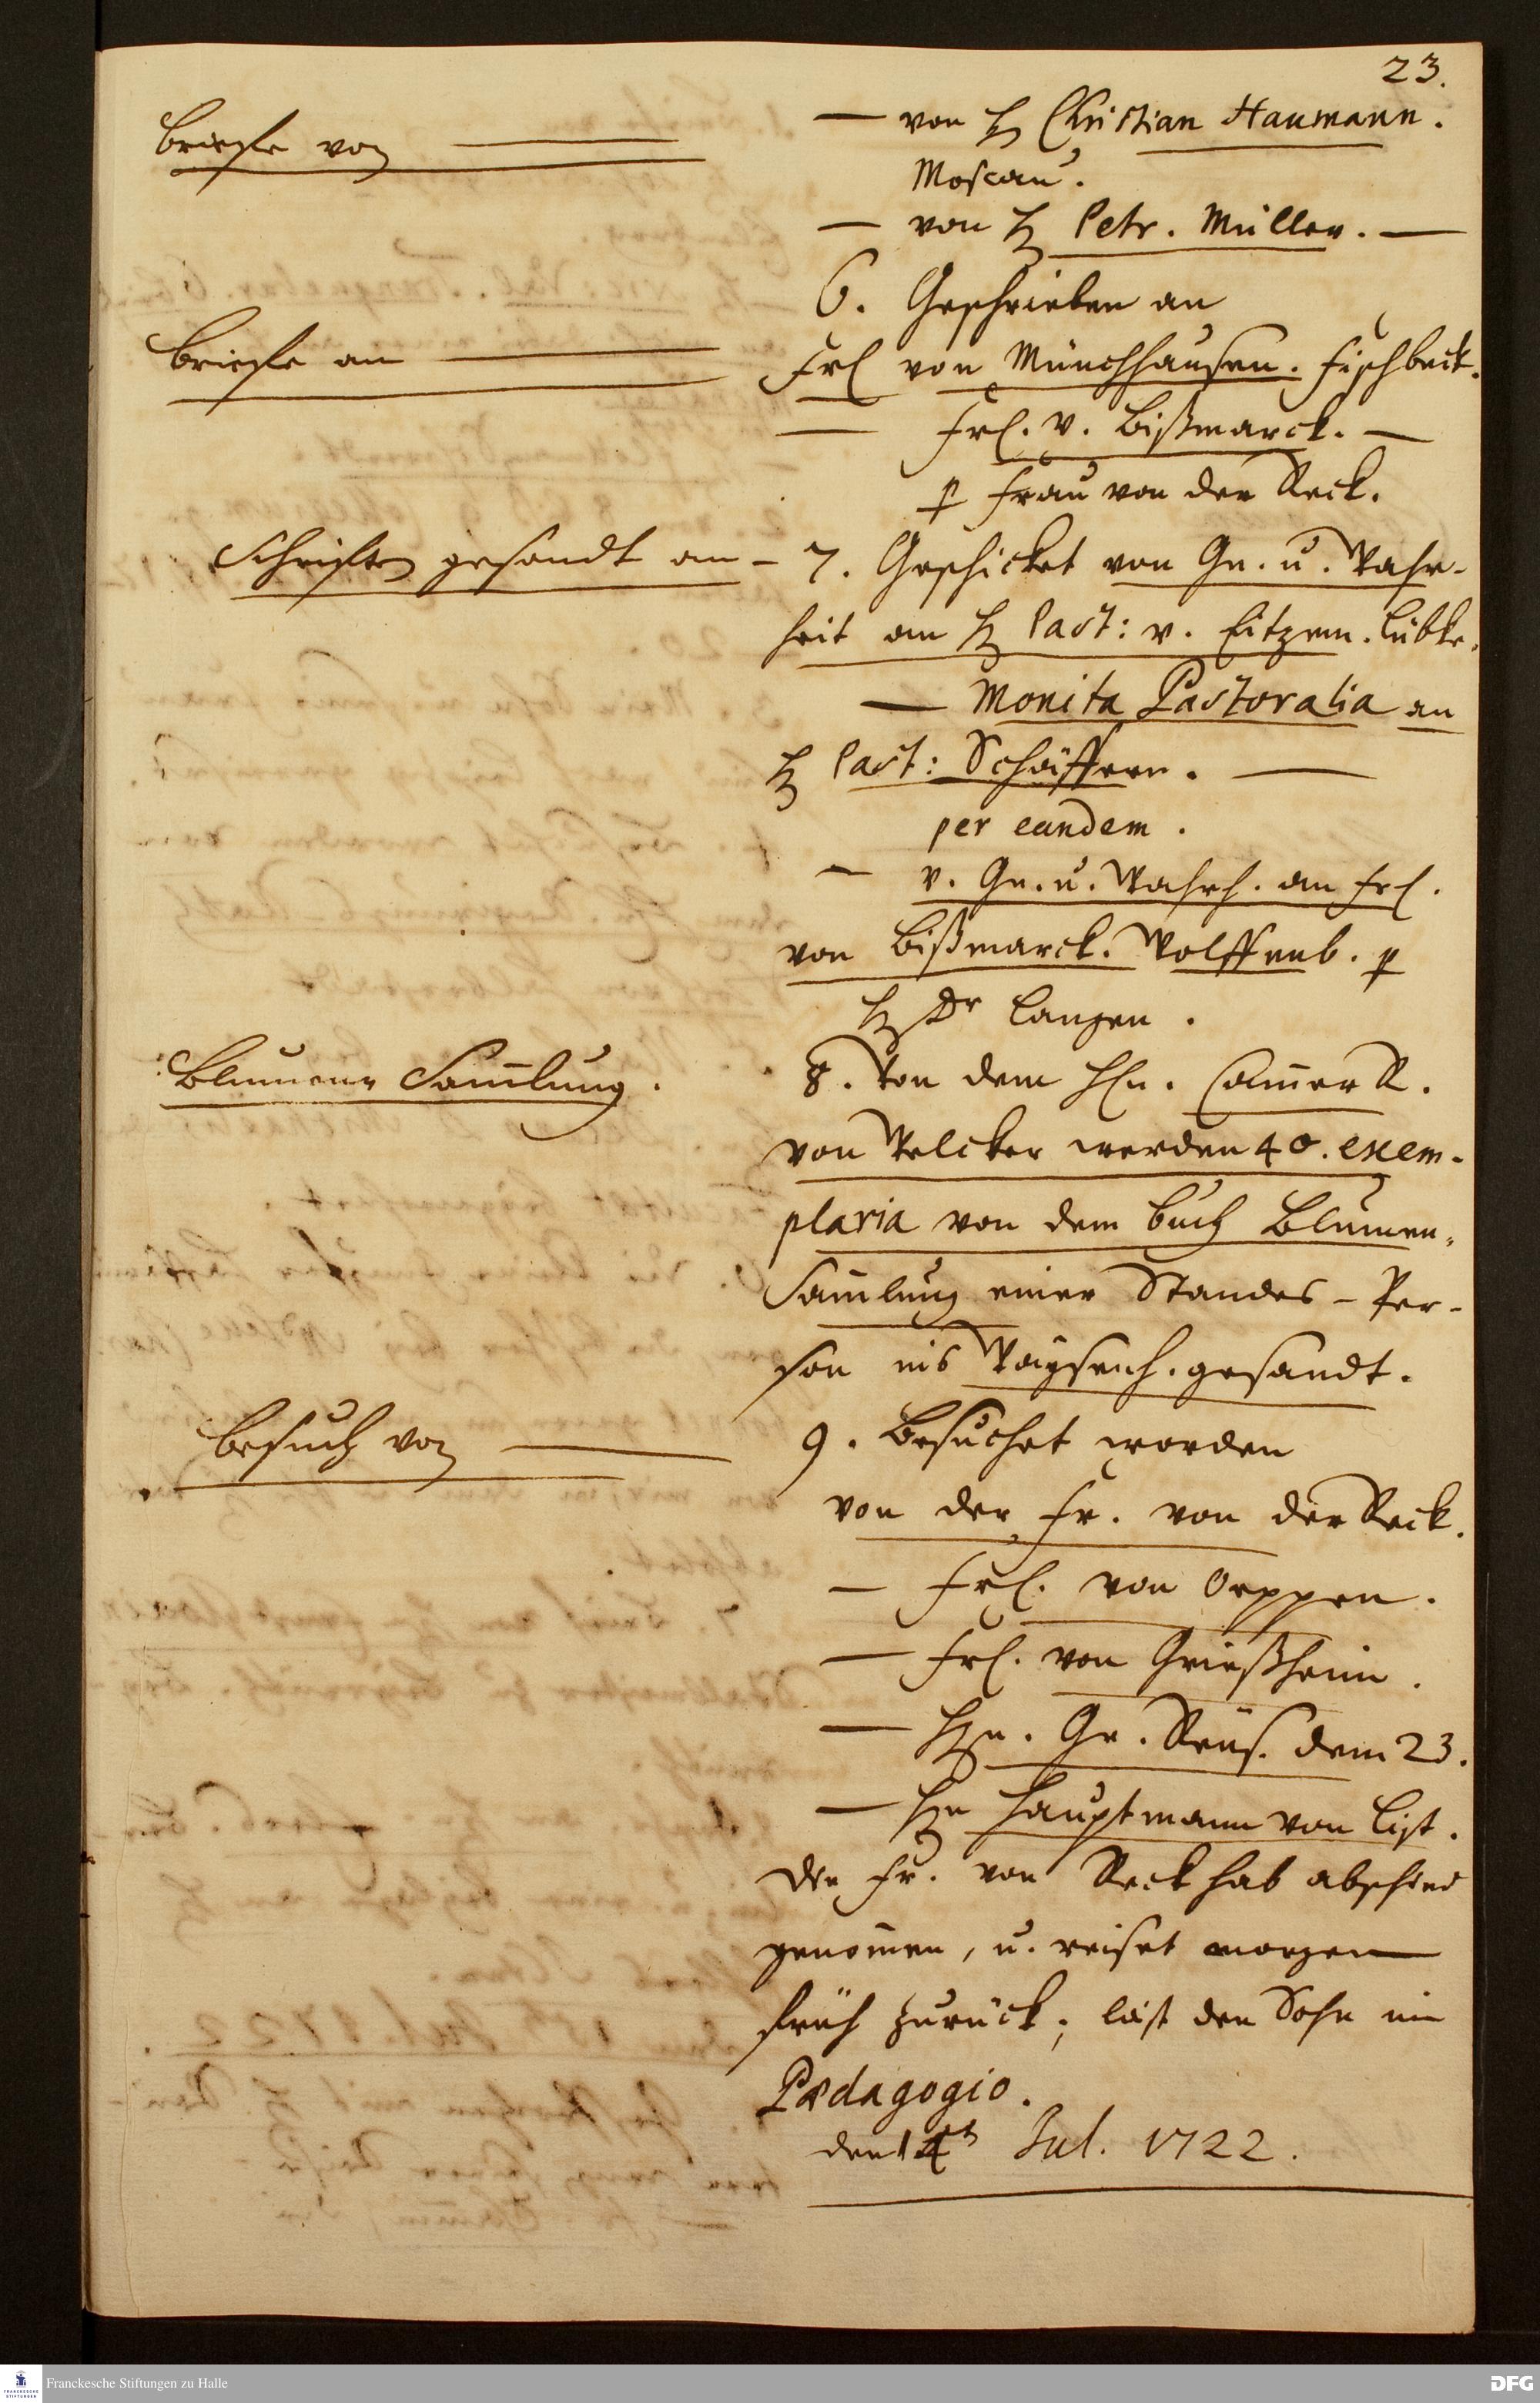 23.
Briefe von
— von H. Christian Haumann.
Moscau.
— von H. Petr. Müller. —
6. Geschrieben an
Briefe an
Frl von Münchhausen. Fischbeck.
— Frl. v. Bißmarck. —
p Frau von der Reck.
Schrifften gesandt an — 7. Geschicket von Gn. u. Wahr-
heit an H. Past: v. Eitzem. Lübke.
— Monita Pastoralia an
H. Past: Schäffern. —
per eandem.
— v. Gn. u. Wahrh. an Frl.
von Bißmarck. Wolffenb. p
H. Dr Langen.
Blumenn Sam̄lung.
8. Von dem Hn. Cam̄er R.
von Velcker werden 40. exem-
plaria von dem buch Blumen-
Sam̄lung einer Standes-Per-
son ins Waysenh. gesandt.
Besuch von
9. Besuchet worden
von der Fr. von der Reck.
— Frl. von Oeppen.
— Frl. von Grießheim.
— Hn. Gr. Reuß. dem 23.
— Hn Hauptmann von List.
Die Fr. von Reck hab abschied
genom̄en, u. reiset morgen
früh zurück; läst den Sohn im
Pædagogio.
den 14t Jul. 1722.
Franckesche Stiftungen zu Halle
DFG